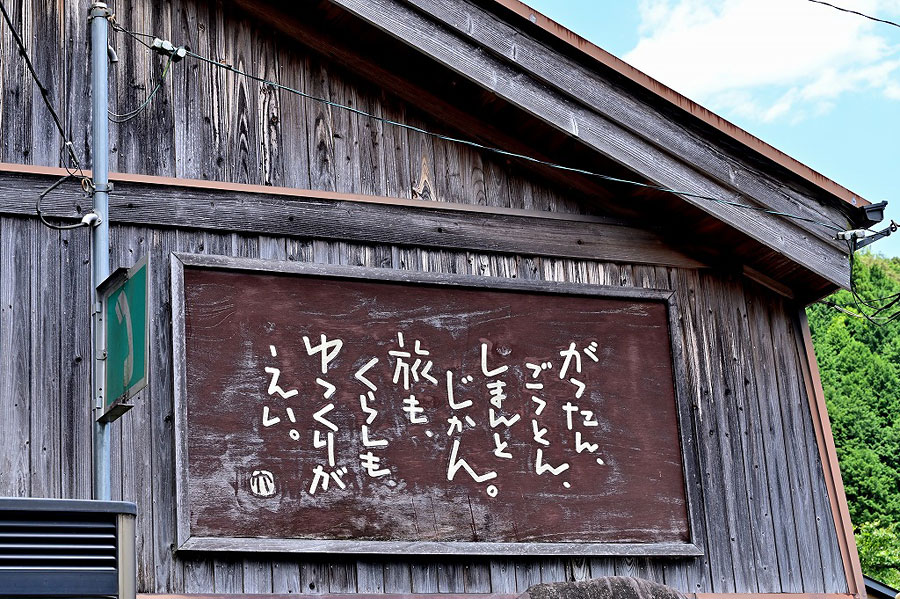 がったん、
ごっとん、
しまんと
じかん。
旅も、
くらしも、
ゆっくりが
えい。